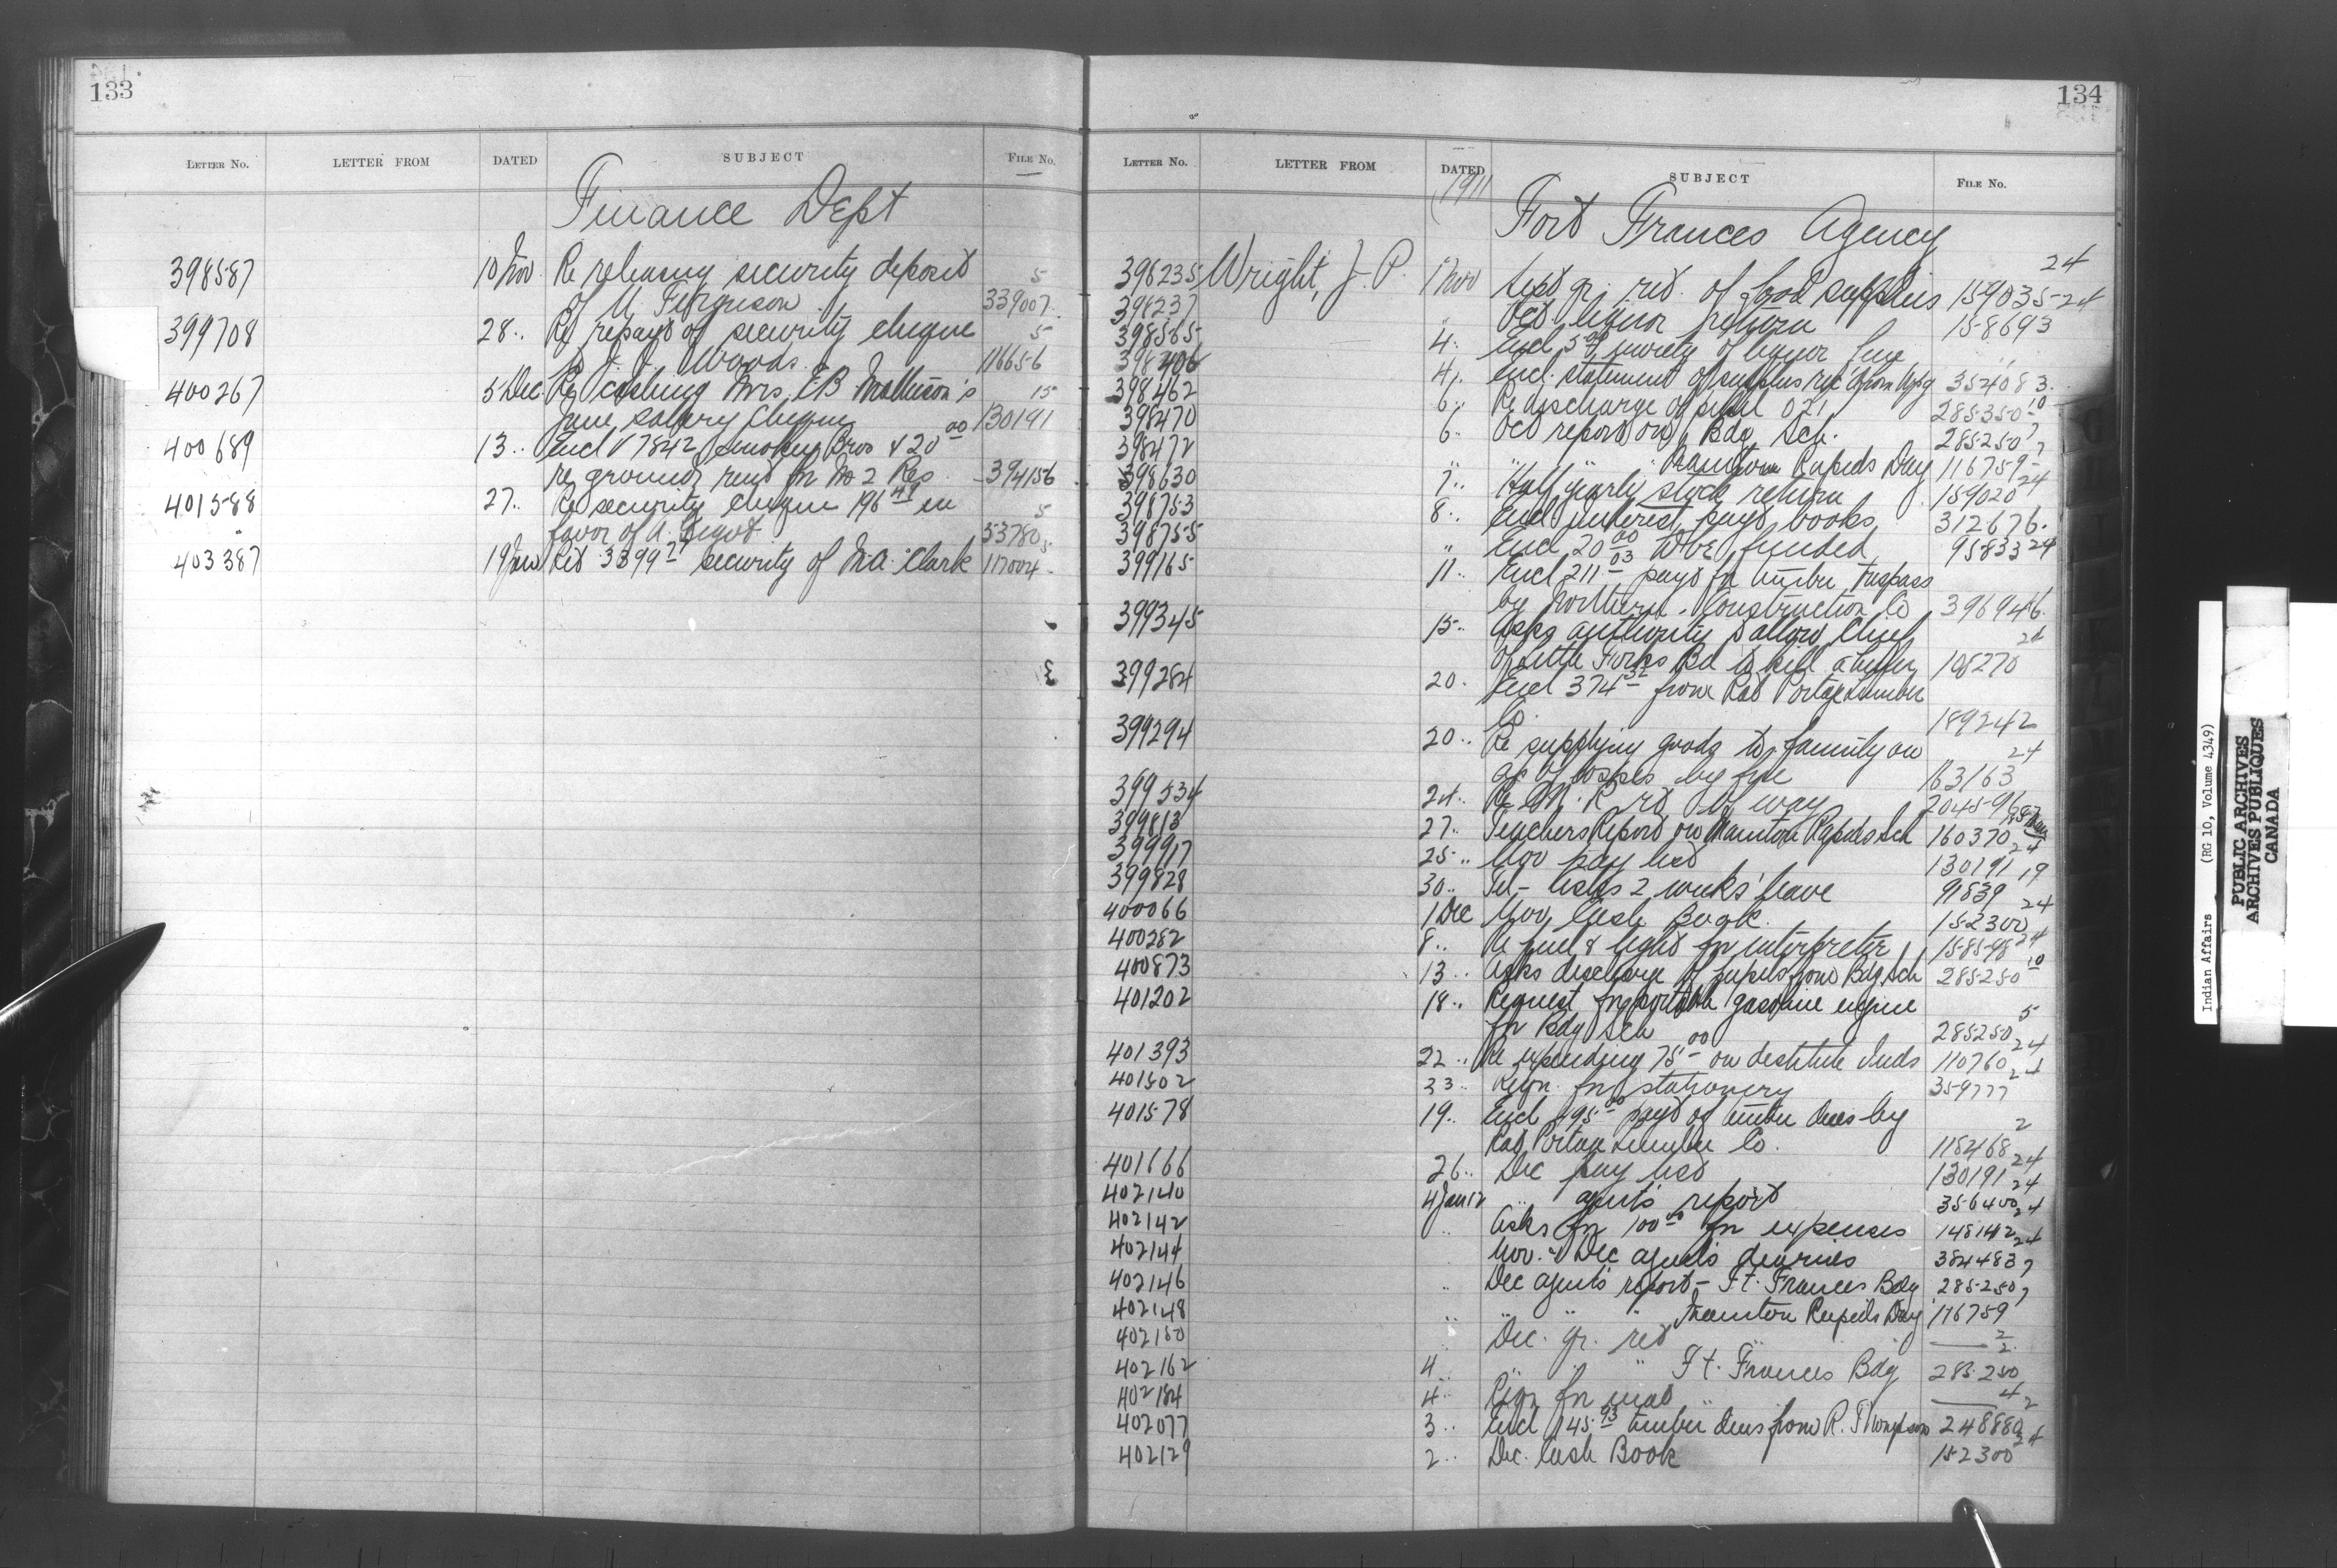 133
LETTER NO. LETTER FROM DATED SUBJECT FILE NO.
Finance Dept
398587 10 Nov. Re releasing security deposit 5
of Ferguson 339007
399708 28.. Re repayt of security cheque 5
to J. J. Woods. 116656
400267 5 Dec. Re cashing Mrs. E B Matheson's 15
June salary cheque 130191
400689 13.. Encl 7842 Bros 20 00
re ground rent for No 2 Res 394156
401588 27.. Re security cheque 196 in 5
favor of A. 53780
403387 19 Jan Ret 3399 security of M.A. Clark 117004
134
LETTER NO. LETTER FROM DATED SUBJECT FILE NO.
1911 Fort Frances Agency
396235 Wright, J. P. 1 Nov Sept qr. ret. of food supplies 159035 24
398237 Oct. liquor return 158693 24
398565 4.. Encl 5 00 moiety of liquor fine
398406 4.. Encl. statement of surplus rec'd from 354083
398462 6.. Re discharge of pupil 021 285350 10
398470 6.. Oct report on Bdg Sch. 285250 7
398472 " " " Manitou Rapids Day 116759 7
398630 7.. Half yearly stock return 159020 24
398753 8.. Encl interest payt books 312676
398755 " Encl 20 00 to be funded 95833 24
399165 11.. Encl 211 03 payt for timber trespass
by Northern Construction Co 396946
399345 15.. Asks authority to allow Chief
of Little Forks Bd to kill a heifer 105270 24
399284 20.. Encl 374 from Rat Portage Lumber
Co. 189242
399294 20.. Re supplying goods to family on 24
a/c of losses by fire 163163
399534 24.. Re R rt of way 204596
399813 27.. Teachers Report on Manitou Rapids Sch 160370
399917 25.. Nov pay list 130191 24
399828 30.. Tel - Asks 2 weeks' leave 91839 19
400066 1 Dec Nov Cash Book. 152300 24
400282 8.. Re fuel & light for interpreter 158598 24
400873 13.. Asks discharge of pupils from Bdg. Sch 285250 10
401202 18.. Request for portable gasoline engine
for Bdg Sch 285250 5
401393 22.. Re expending 75 00 on destitute Inds 110760 24
401502 23.. Reqn. for stationery 359777 24
401578 19.. Encl 495 payt of timber dues by 2
Rat Portage Lumber Co. 118468
401666 26.. Dec pay list 130191 24
402140 4 Jan 12 " agent's report 356400 24
402142 .. Asks for 100 00 for expenses 148142 24
402144 Nov. & Dec agent's diaries 384483 24
402146 .. Dec agent's report - Ft. Frances Bdg 285250 7
402148 .. " " " Manitou Rapids Day 116759 7
402150 .. Dec. qr. ret — 2
402162 4 " " " Ft. Frances Bdg 285250 2
402184 4.. Reqn for meat — 4
402077 3.. Encl 145 93 timber dues from R. Thompson 248880 2
402129 2.. Dec. Cash Book 152300 24
Indian Affairs (RG 10, Volume 4349)
PUBLIC ARCHIVES
ARCHIVES PUBLIQUES
CANADA